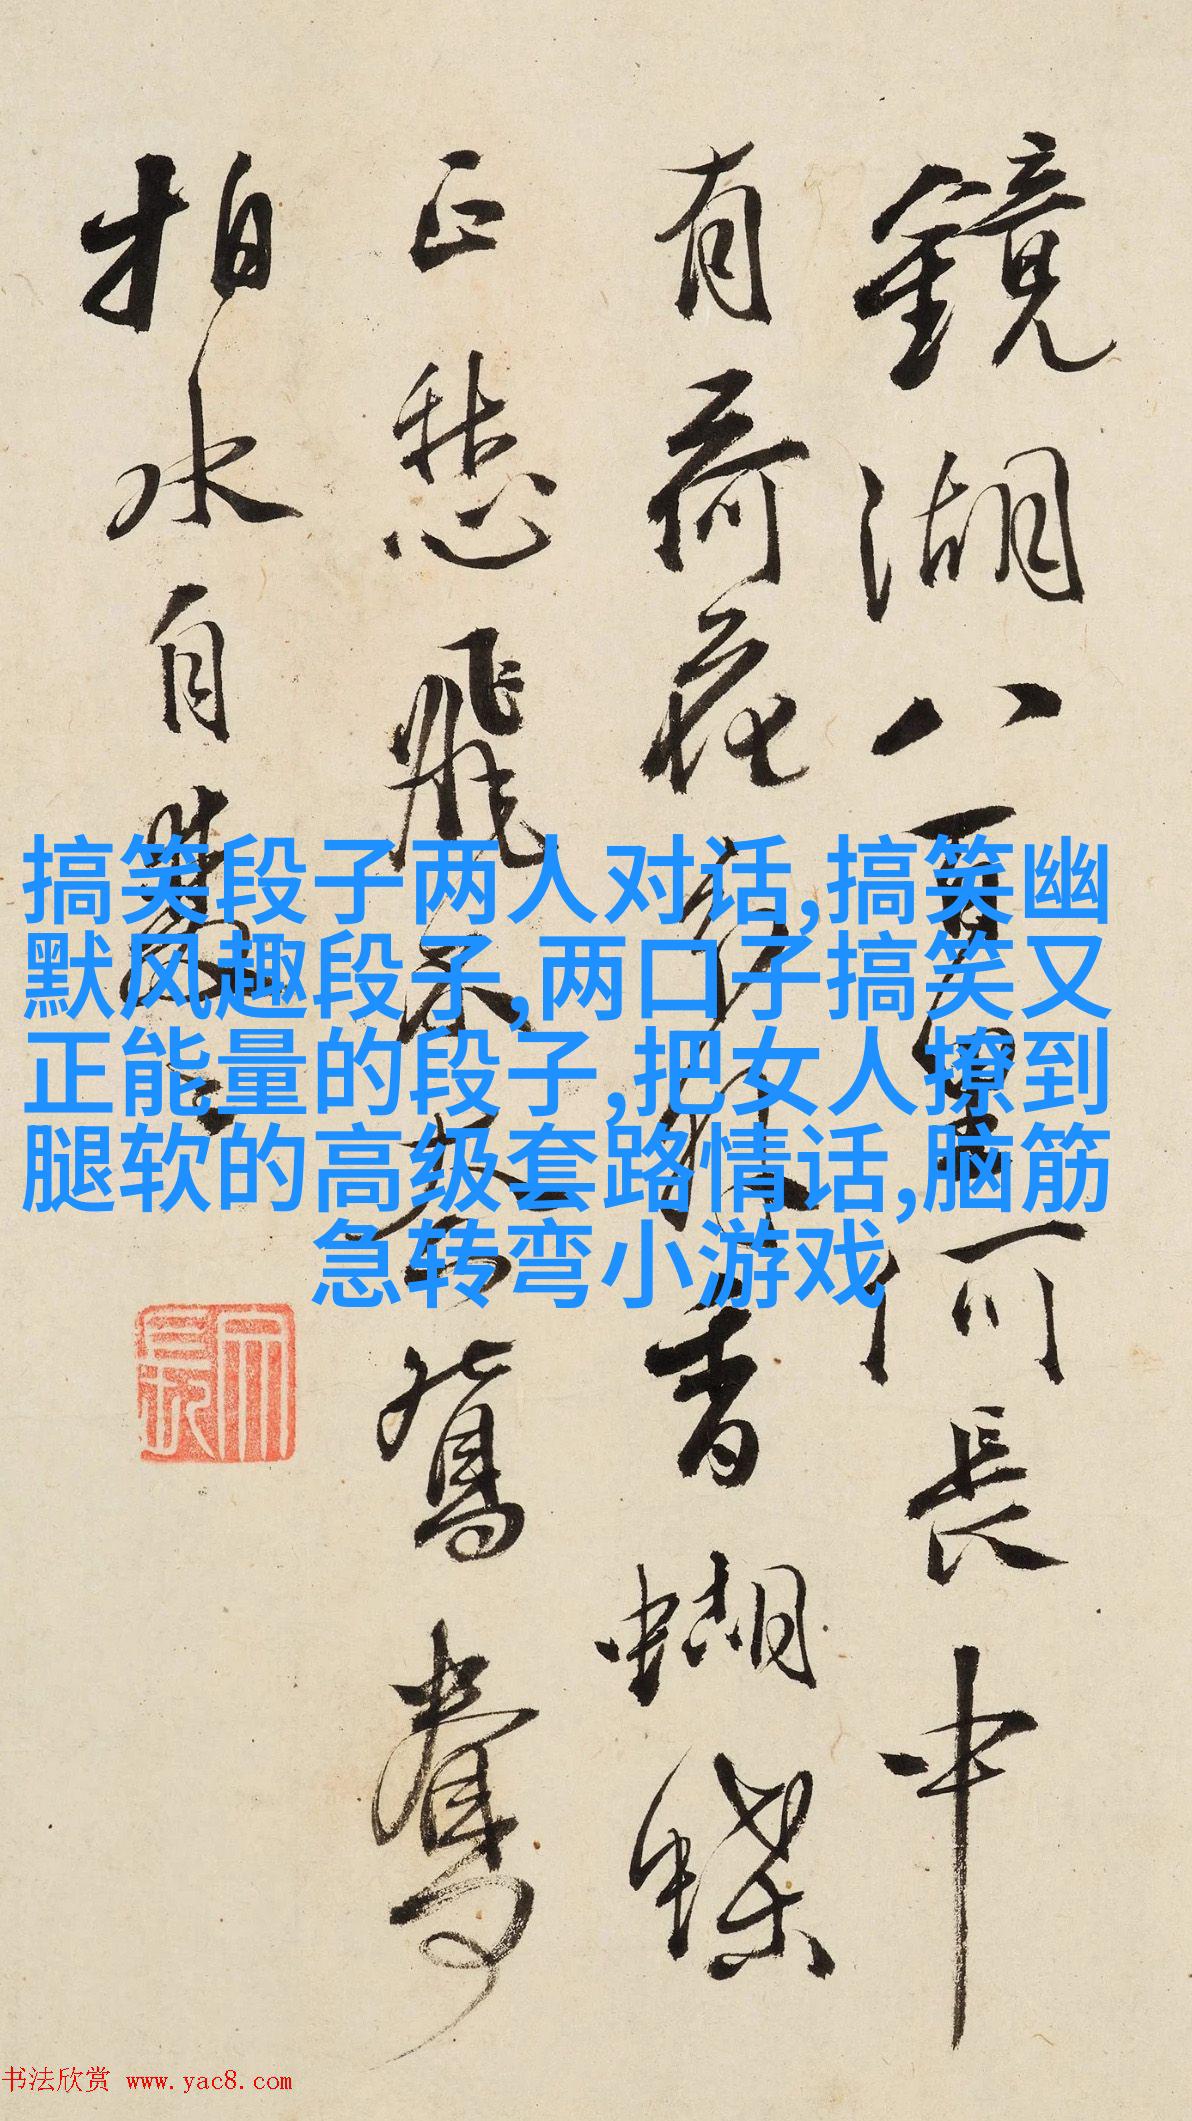 鏡湖八百里何長中
有荷花
香蝴蝶
正愁飛
鴛鴦
拍水自
搞笑段子两人对话,搞笑幽
默风趣段子,两口子搞笑又
正能量的段子,把女人撩到
腿软的高级套路情话,脑筋
急转弯小游戏
书法欣赏 www.yac8.com